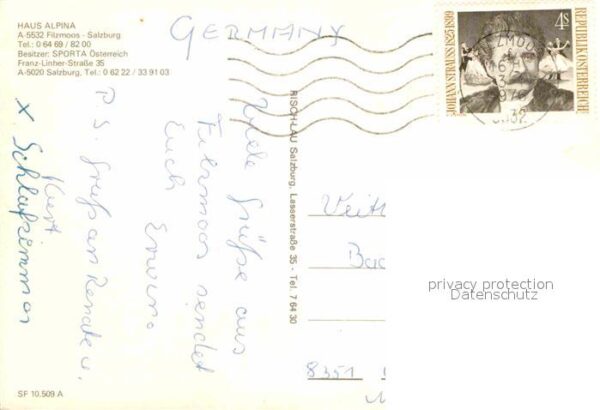 HAUS ALPINA
A-5532 Filzmoos - Salzburg
Tel.: 0 64 69 / 82 00
Besitzer: SPORTA Österreich
Franz-Linher-Straße 35
A-5020 Salzburg, Tel.: 0 62 22 / 33 91 03
GERMANY
4s
REPUBLIK ÖSTERREICH
JOHANN STRAUSS 1825-1899
5532
Viele Grüße aus
Filzmoos sendet
Euch
Erwin.
P.S. Gruß an Renate u.
Kurt
X Schlafzimmer
RISCH-LAU Salzburg, Lasserstraße 35 - Tel. 7 64 30
Veit
8351
privacy protection
Datenschutz
SF 10.509 A